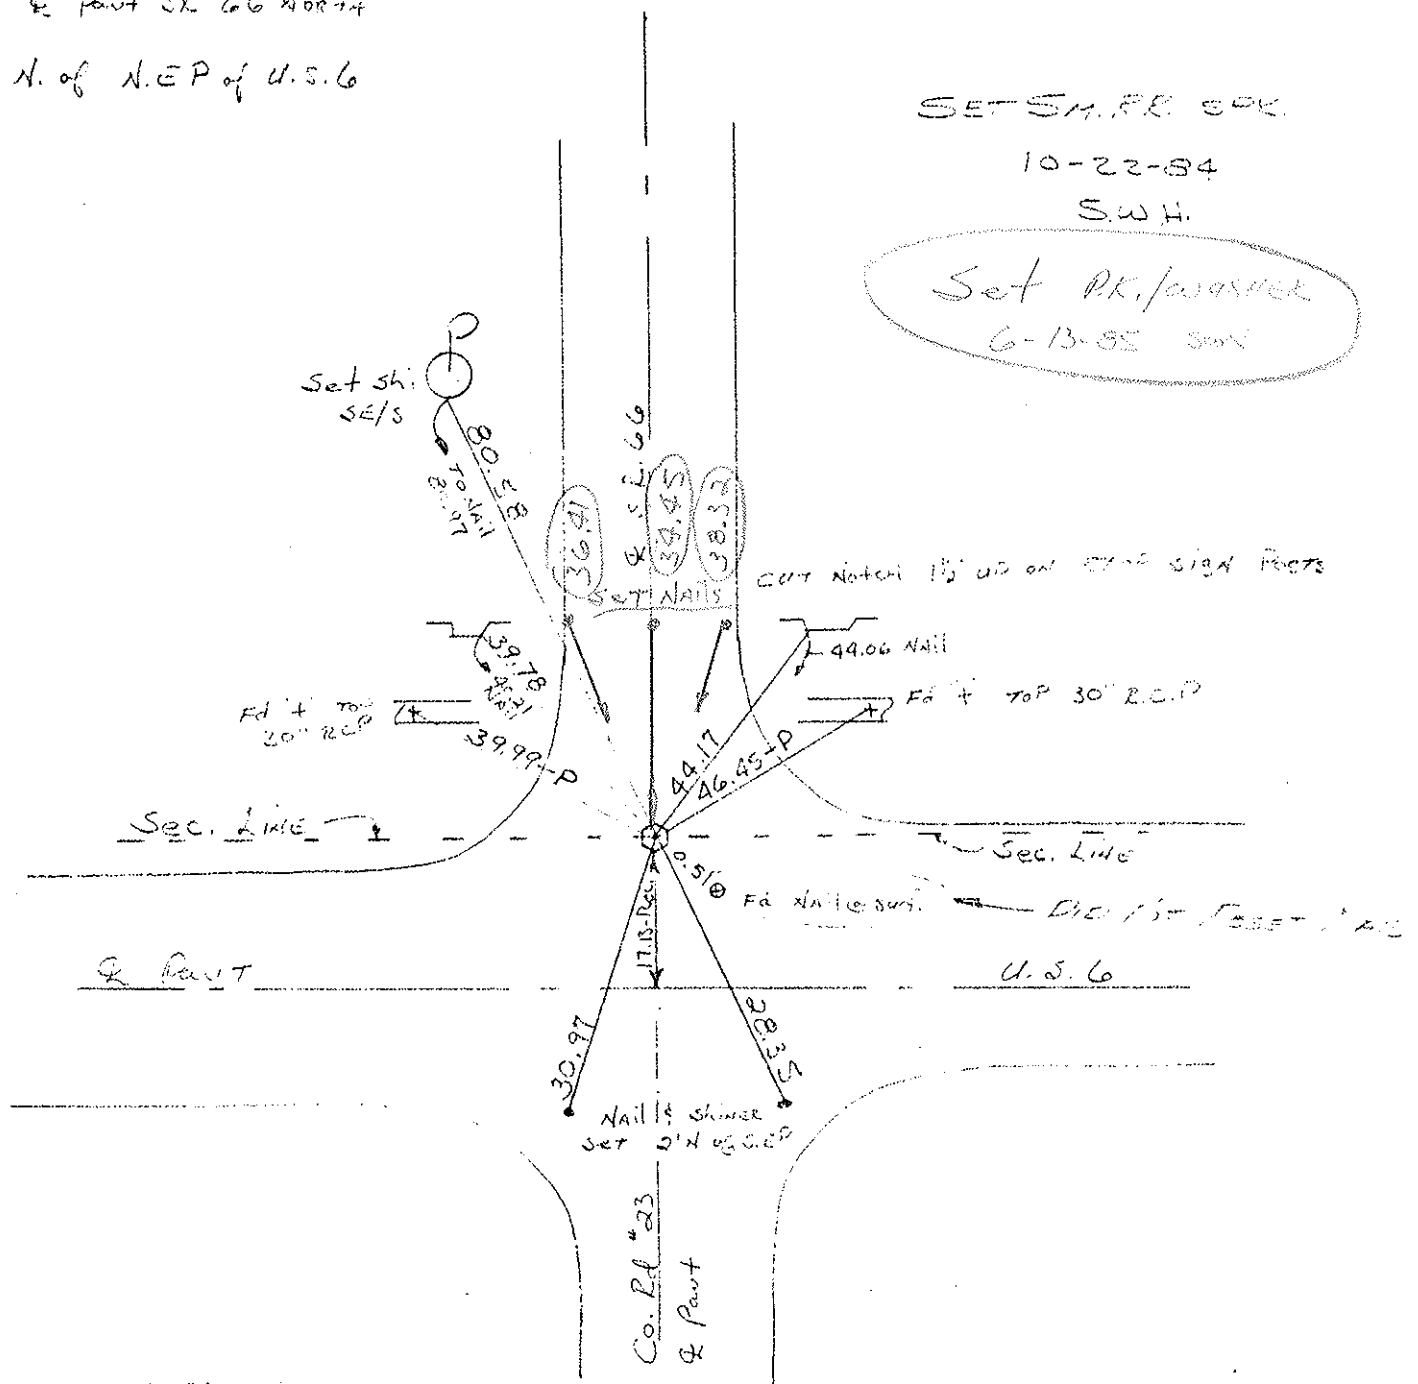 ℄ Pavt
66 NORTH
N. of N.E.P of U.S.6
SET SM. RR. SPK.
10-22-84
S.W.H.
Set P.K./WASHER
6-13-85
Set Shi.
SE/S
TO NAIL
36.41
℄ S.L. 66
38.32
Set NAILS
CUT Notch 1½' UP ON SIGN POSTS
39.78
NAIL
44.06 NAIL
Fd + TOP
RCP
Fd + TOP 30" R.C.P
39.99-P
44.17
46.45-P
Sec. LINE
Sec. LINE
0.51
Fd Nail @ Surf.
17.13-Rec.
℄ PavT
U.S.6
30.97
28.35
NAIL & Shiner
Set 2'N of S.EP
Co. Rd #23
℄ Pavt